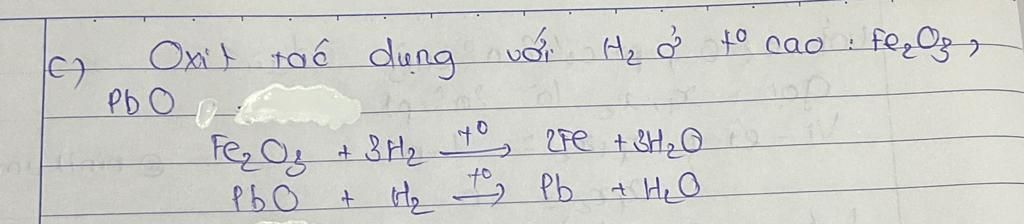 c) Oxit tác dụng với H₂ ở t° cao : Fe₂O₃,
PbO
Fe₂O₃ + 3H₂ —t°→ 2Fe + 3H₂O
PbO + H₂ —t°→ Pb + H₂O